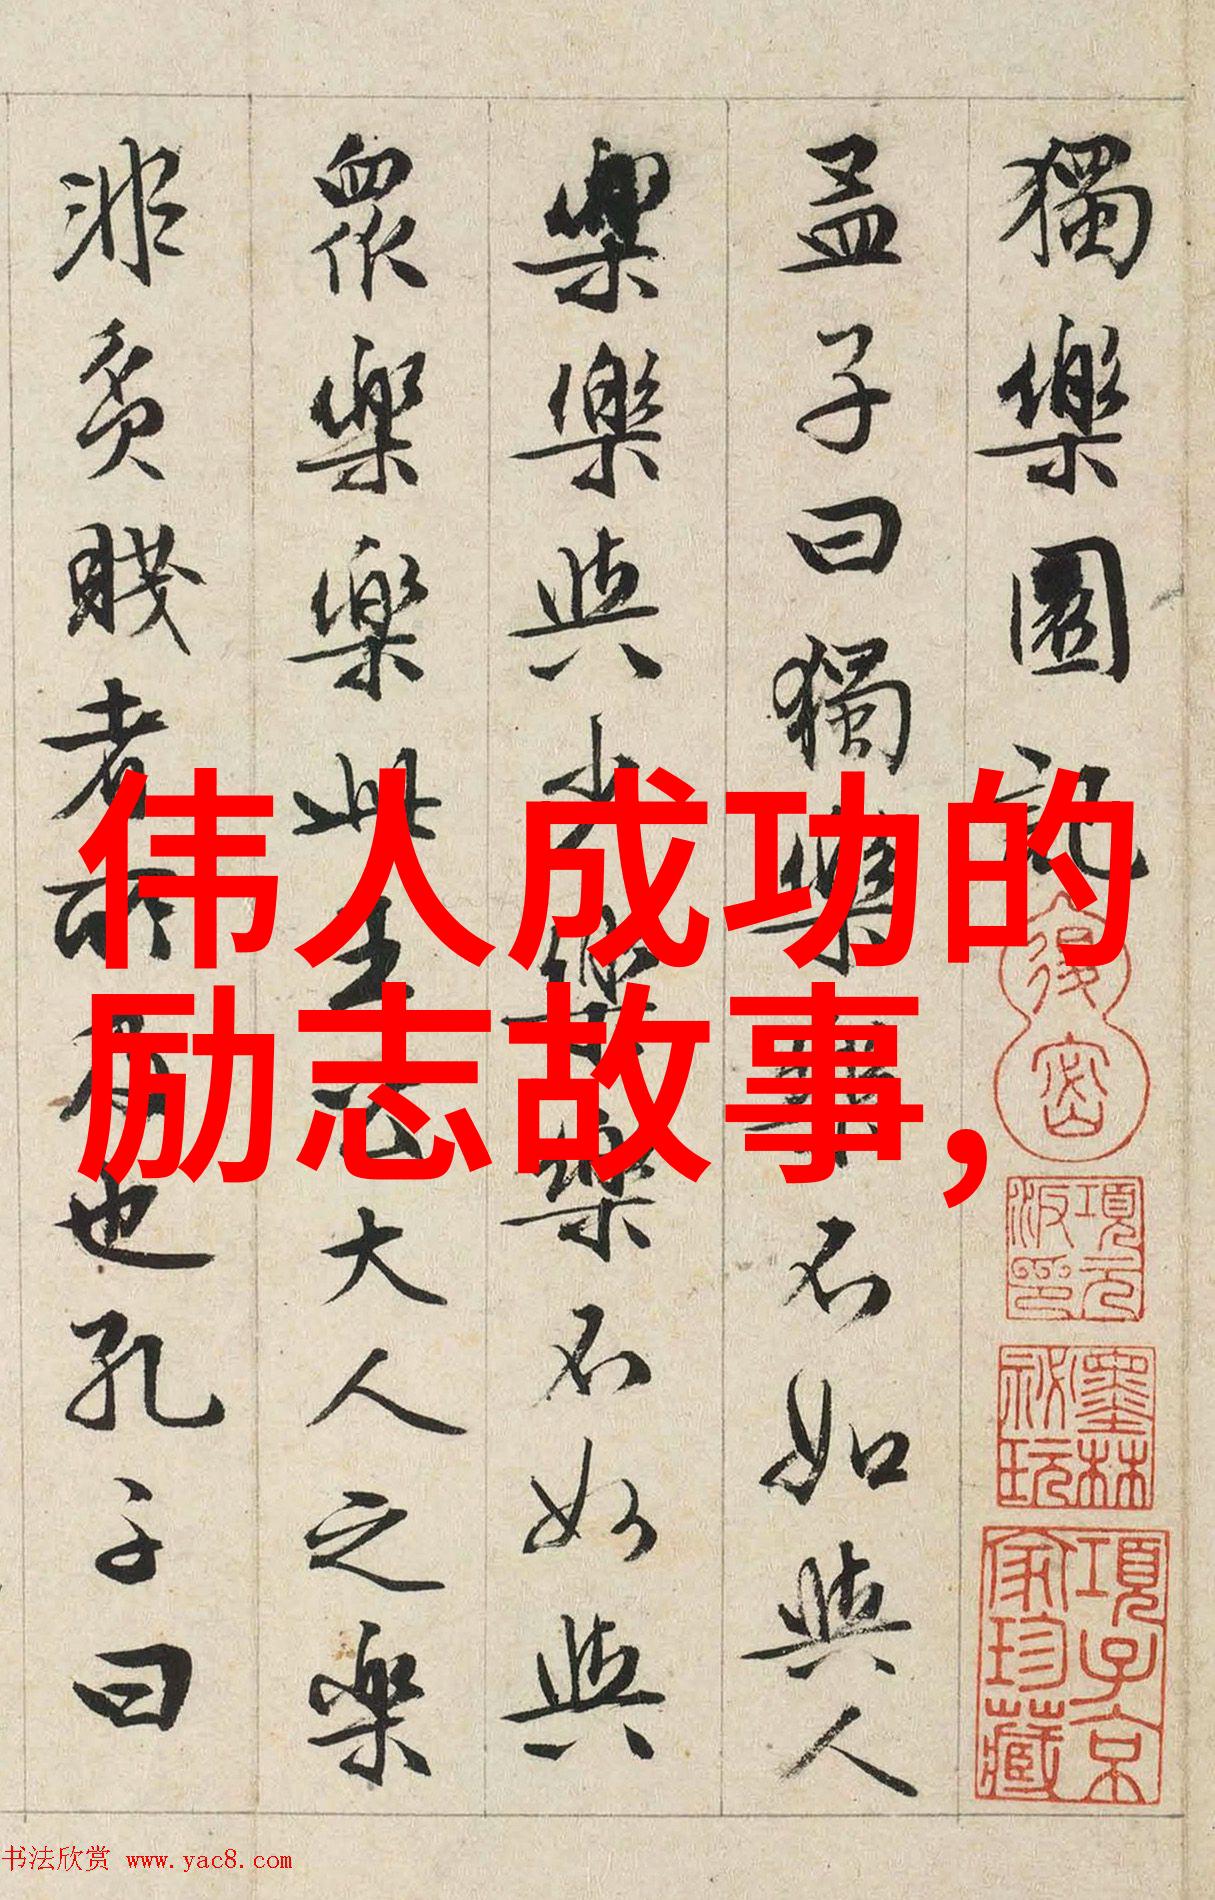 獨樂園記
孟子曰獨樂樂不如與人
樂樂與少樂樂不如與
眾樂樂此王公大人之樂
非貧賤者所及也孔子曰
伟人成功的
励志故事,
項元
汴印
墨林
祕玩
項子京
家珍藏
书法欣赏 www.yac8.com